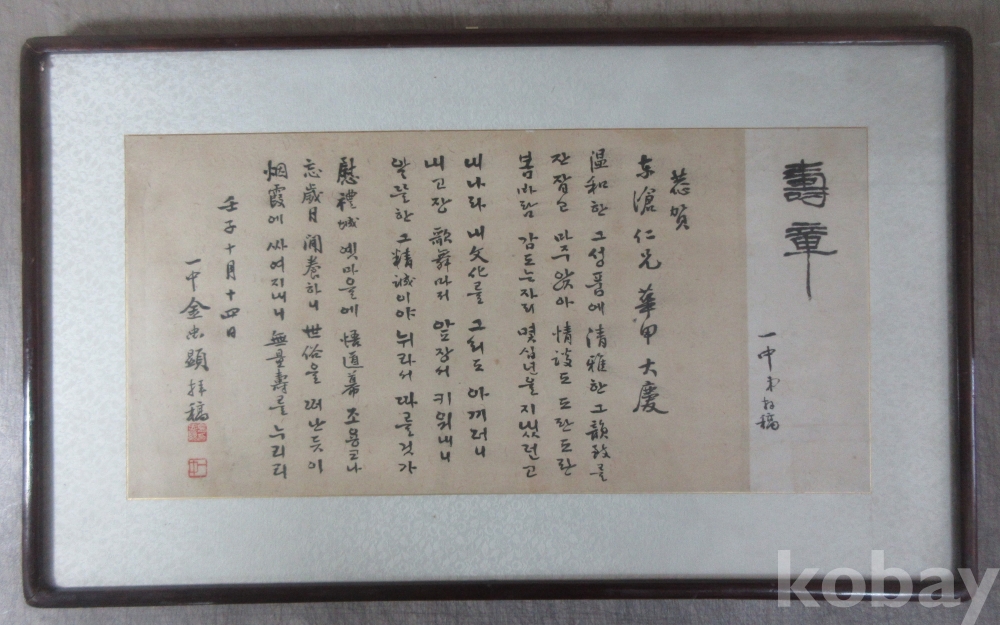 壽章
一中弟拜稿
恭賀
東滄仁兄 華甲大慶
温和한 그성품에 清雅한 그韻致를
잔잡고 마주앉아 情談도 도란도란
봄바람 감도는자리 몇십년을 지냈던고
내나라 내文化를 그리도 아끼러니
내고장 歌舞마저 앞장서 키워내니
알뜰한 그精誠이야 뉘라서 따를것가
慰禮城 옛마을에 悟道幕 조용코나
忘歲月 閒養하니 世俗을 떠난듯이
烟霞에 싸여지내니 無量壽를 누리리
壬子十月十四日
一中 金忠顯 拜稿
kobay